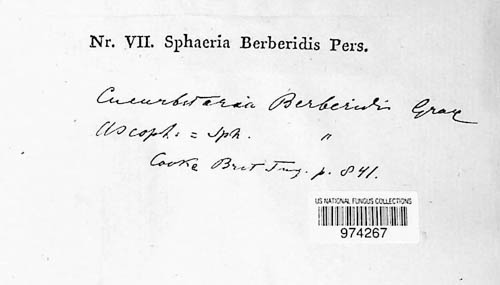 Nr. VII. Sphaeria Berberidis Pers.
Cucurbitaria Berberidis Gray
Ascoph. = Sph. "
Cooke Brit Fung. p. 841.
US NATIONAL FUNGUS COLLECTIONS
974267